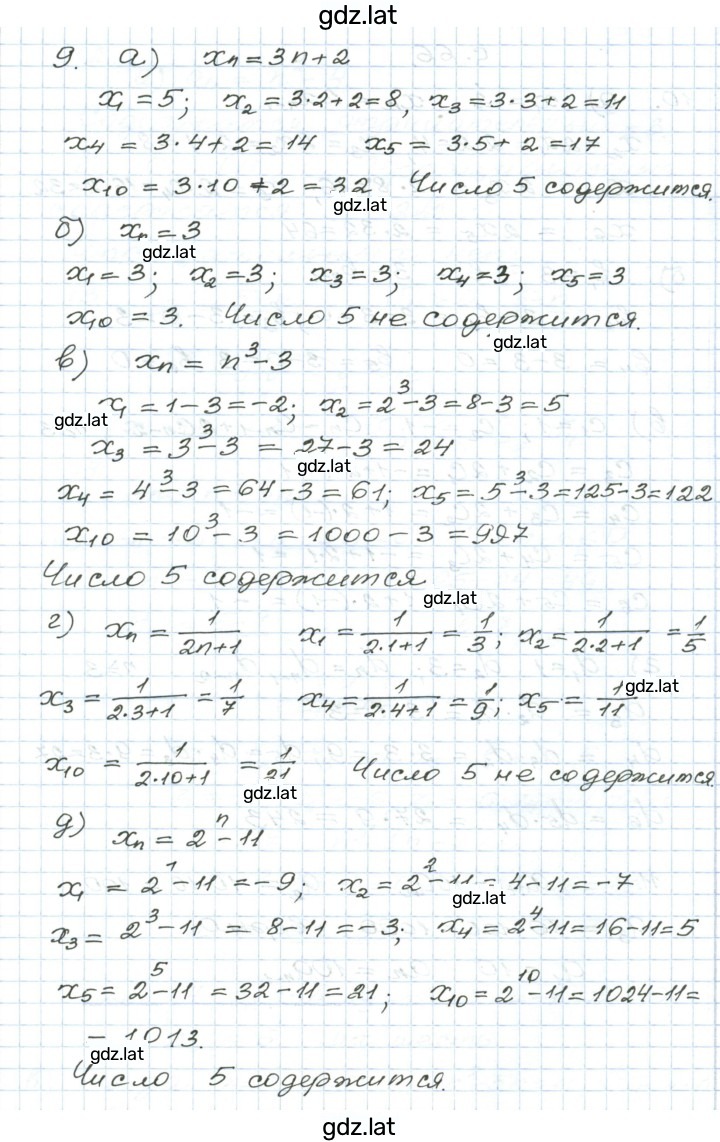 gdz.lat
9. а) xₙ = 3n + 2
x₁ = 5; x₂ = 3·2+2 = 8, x₃ = 3·3+2 = 11
x₄ = 3·4+2 = 14 x₅ = 3·5+2 = 17
x₁₀ = 3·10+2 = 32 Число 5 содержится.
gdz.lat
б) xₙ = 3
gdz.lat
x₁ = 3; x₂ = 3; x₃ = 3; x₄ = 3; x₅ = 3
x₁₀ = 3. Число 5 не содержится.
gdz.lat
в) xₙ = n³ - 3
gdz.lat x₁ = 1-3 = -2; x₂ = 2³-3 = 8-3 = 5
x₃ = 3³-3 = 27-3 = 24
gdz.lat
x₄ = 4³-3 = 64-3 = 61; x₅ = 5³-3 = 125-3 = 122
x₁₀ = 10³-3 = 1000-3 = 997
Число 5 содержится
gdz.lat
г) xₙ = 1/(2n+1) x₁ = 1/(2·1+1) = 1/3; x₂ = 1/(2·2+1) = 1/5
x₃ = 1/(2·3+1) = 1/7 x₄ = 1/(2·4+1) = 1/9; x₅ = 1/11 gdz.lat
x₁₀ = 1/(2·10+1) = 1/21 Число 5 не содержится.
gdz.lat
д) xₙ = 2ⁿ - 11
x₁ = 2¹-11 = -9; x₂ = 2²-11 = 4-11 = -7
gdz.lat
x₃ = 2³-11 = 8-11 = -3; x₄ = 2⁴-11 = 16-11 = 5
x₅ = 2⁵-11 = 32-11 = 21; x₁₀ = 2¹⁰-11 = 1024-11 =
- 1013.
gdz.lat
Число 5 содержится.
gdz.lat